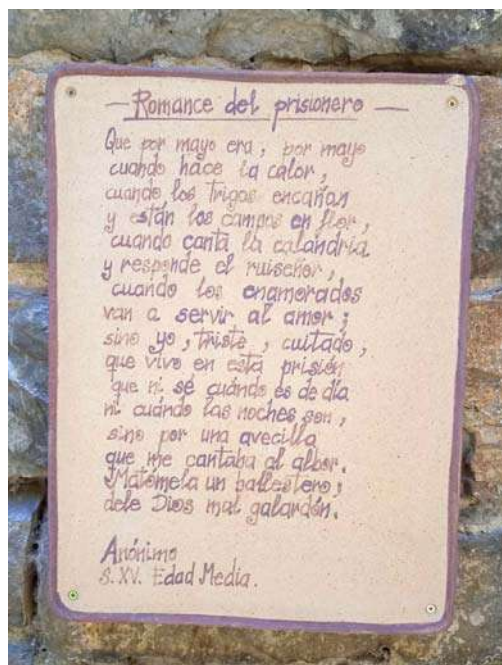 — Romance del prisionero —
Que por mayo era, por mayo
cuando hace la calor,
cuando los trigos encañan
y están los campos en flor,
cuando canta la calandria
y responde el ruiseñor,
cuando los enamorados
van a servir al amor;
sino yo, triste, cuitado,
que vivo en esta prisión
que ni sé cuándo es de día
ni cuándo las noches son,
sino por una avecilla
que me cantaba al albor.
Matómela un ballestero;
dele Dios mal galardón.
Anónimo
S. XV. Edad Media.